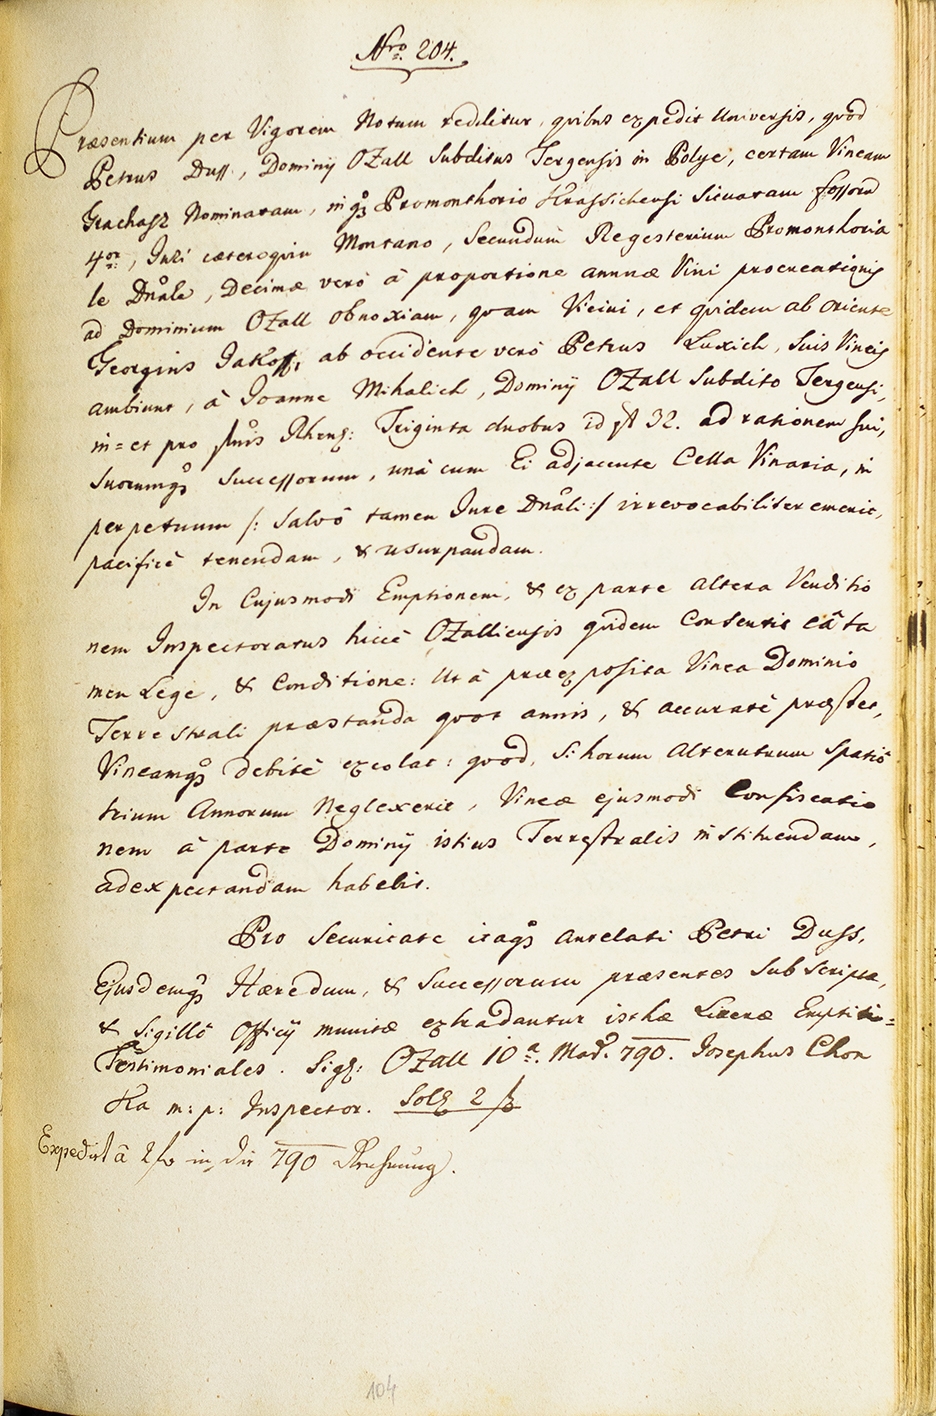 Nro. 204.
Præsentium per Vigorem Notum redditur, quibus expedit Universis, quod
Petrus Duss, Dominÿ Ozall Subditus Tergensis in Polye, certam Vineam
Grachasz Nominatam, in gs Promonthorio Krassichensi Situatam fossorū
4or, Juri cæteroquin Montano, Secundum Regesterium Promonthoria
le Dnale, Decimæ verò à proportione annuæ Vini procreationis
ad Dominium Ozall obnoxiam, quam Vicini, et quidem ab oriente
Georgius Jakoff, ab occidente verò Petrus Luxich, Suis Vineis
ambiunt, à Joanne Mihalich, Dominÿ Ozall Subdito Tergensi,
in=et pro flnis Rhens: Triginta duobus id fl 32. ad rationem sui,
Suorumqs Successorum, unà cum Ei adjacente Cella Vinaria, in
perpetuum /: Salvô tamen Jure Dnali :/ irrevocabiliter emerit,
pacificè tenendam, & usurpandam.
In Cujusmodi Emptionem, & ex parte altera Venditio
nem Inspectoratus hicce Ozalliensis quidem Consentit eâ ta
men Lege, & Conditione: Ut à præexposita Vinea Dominio
Terrestrali præstanda quot annis, & accuratè præstet,
Vineamqs debitè excolat: quod, Si horum Alterutrum Spatiô
trium Annorum Neglexerit, Vineæ ejusmodi Confiscatio
nem à parte Dominÿ istius Terrestralis instituendam,
adexpectandam habebit.
Pro Securitate itaqs antelati Petri Duss,
Ejusdemqs Hæredum, & Successorum præsentes Subscriptæ,
& Sigillô Officÿ munitæ extradantur isthæ Literæ Emptiti=
Testimoniales. Sigs: Ozall 10a. Mart. 790. Josephus Chon
Ka m: p: Inspector. Solt 2 f
Expedirt â 2 f in die 790 Rechnung.
104